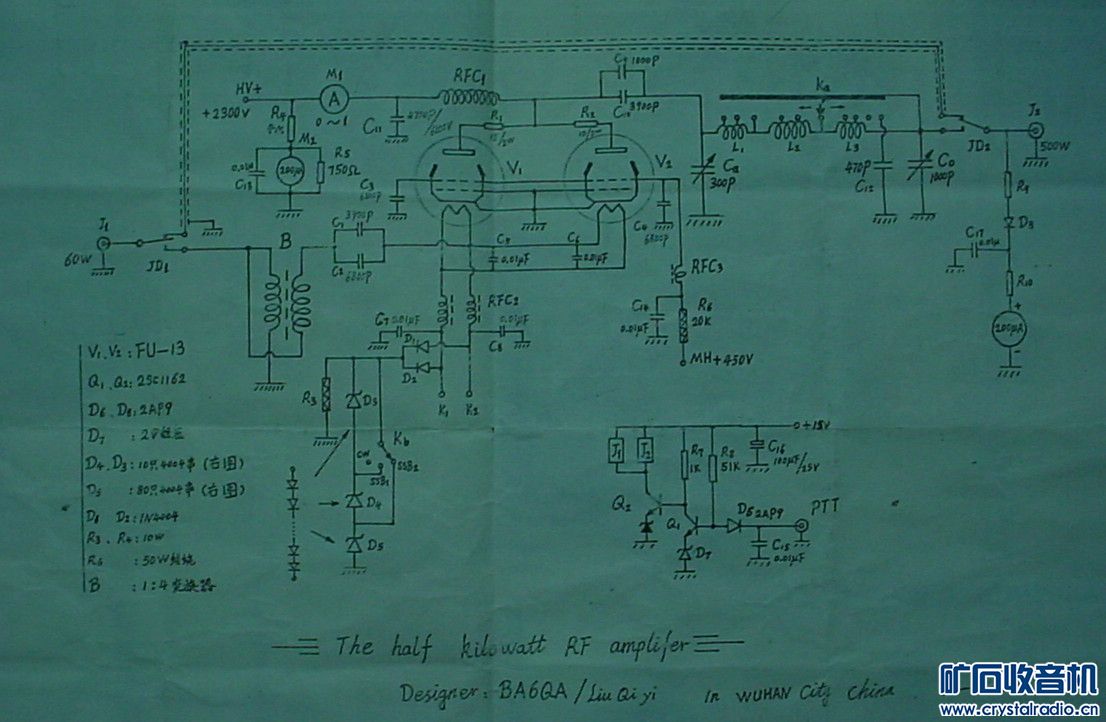 HV+
+2300V
M1
A
0~1
RFC1
C11
R4
M2
200μA
R5
750Ω
C13
R1
R2
C9 1000P
C10 3900P
V1
V2
C3
6800P
C4
6800P
Ca
300P
Ka
L1
L2
L3
470P
C12
Co
1000P
JD2
J2
500W
R9
D8
C17
0.01μ
R10
+
200μA
-
J1
60W
JD1
B
C1
3900P
C2
6800P
C5
0.01μF
C6
0.01μF
RFC2
RFC3
C14
0.01μF
R6
20K
MH+450V
C7 0.01μF
0.01μF
C8
D1
D2
K1
K2
R3
D3
Kb
CW
SSB1
SSB2
D4
D5
+18V
J1
J2
R7
1K
R8
51K
C16
100μF/25V
Q2
Q1
D6 2AP9
PTT
D7
C15
0.01μF
V1、V2: FU-13
Q1、Q2: 2SC1162
D6、D8: 2AP9
D7 : 2V稳压
D4、D3: 10只4004串 (右图)
D5 : 80只4004串 (右图)
D1 D2: 1N4004
R3、R4: 10W
R6 : 50W线绕
B : 1:4变换器
The half kilowatt RF amplifer
Designer: BA6QA / Liu Qi yi In WUHAN City China
矿石收音机
www.crystalradio.cn